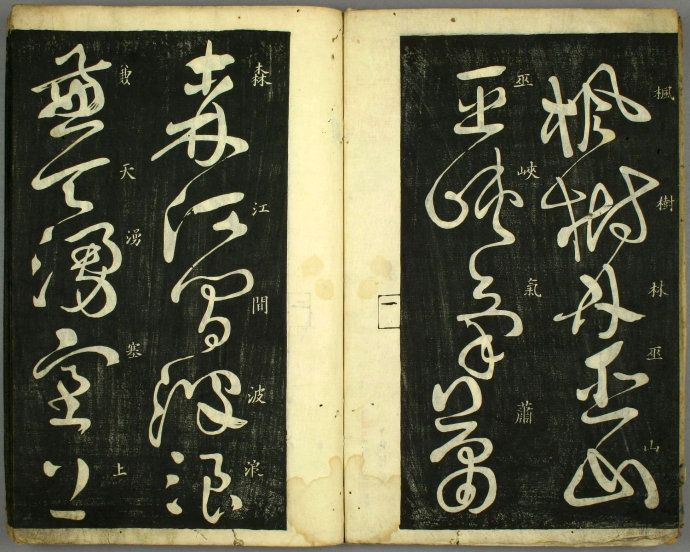 楓樹林巫山
楓樹林巫山
巫峽氣蕭
巫峽氣蕭
一
森江間波浪
森江間波浪
兼天湧塞上
天湧塞上